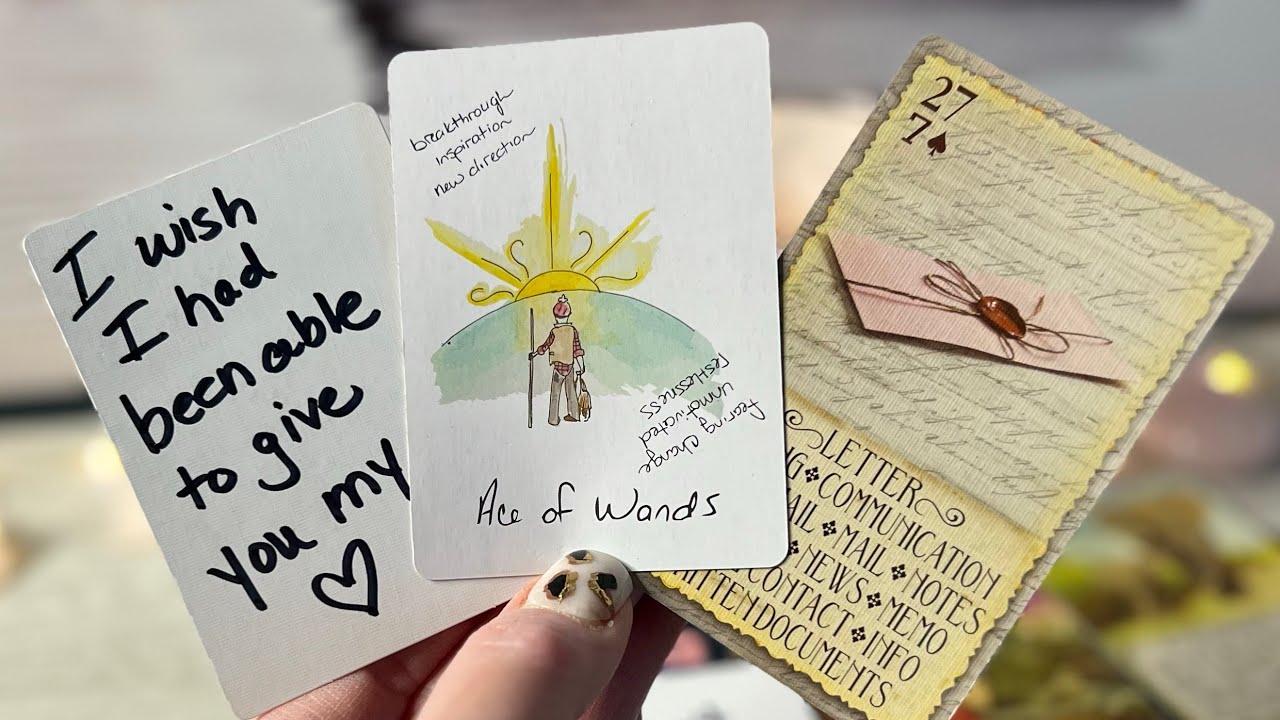 I wish
I had
been able
to give
you my
breakthrough
inspiration
new direction
fearing change
unmotivated
restlessness
Ace of Wands
27
7♠
LETTER
COMMUNICATION
MAIL ✤ NOTES
NEWS ✤ MEMO
CONTACT ✤ INFO
DOCUMENTS